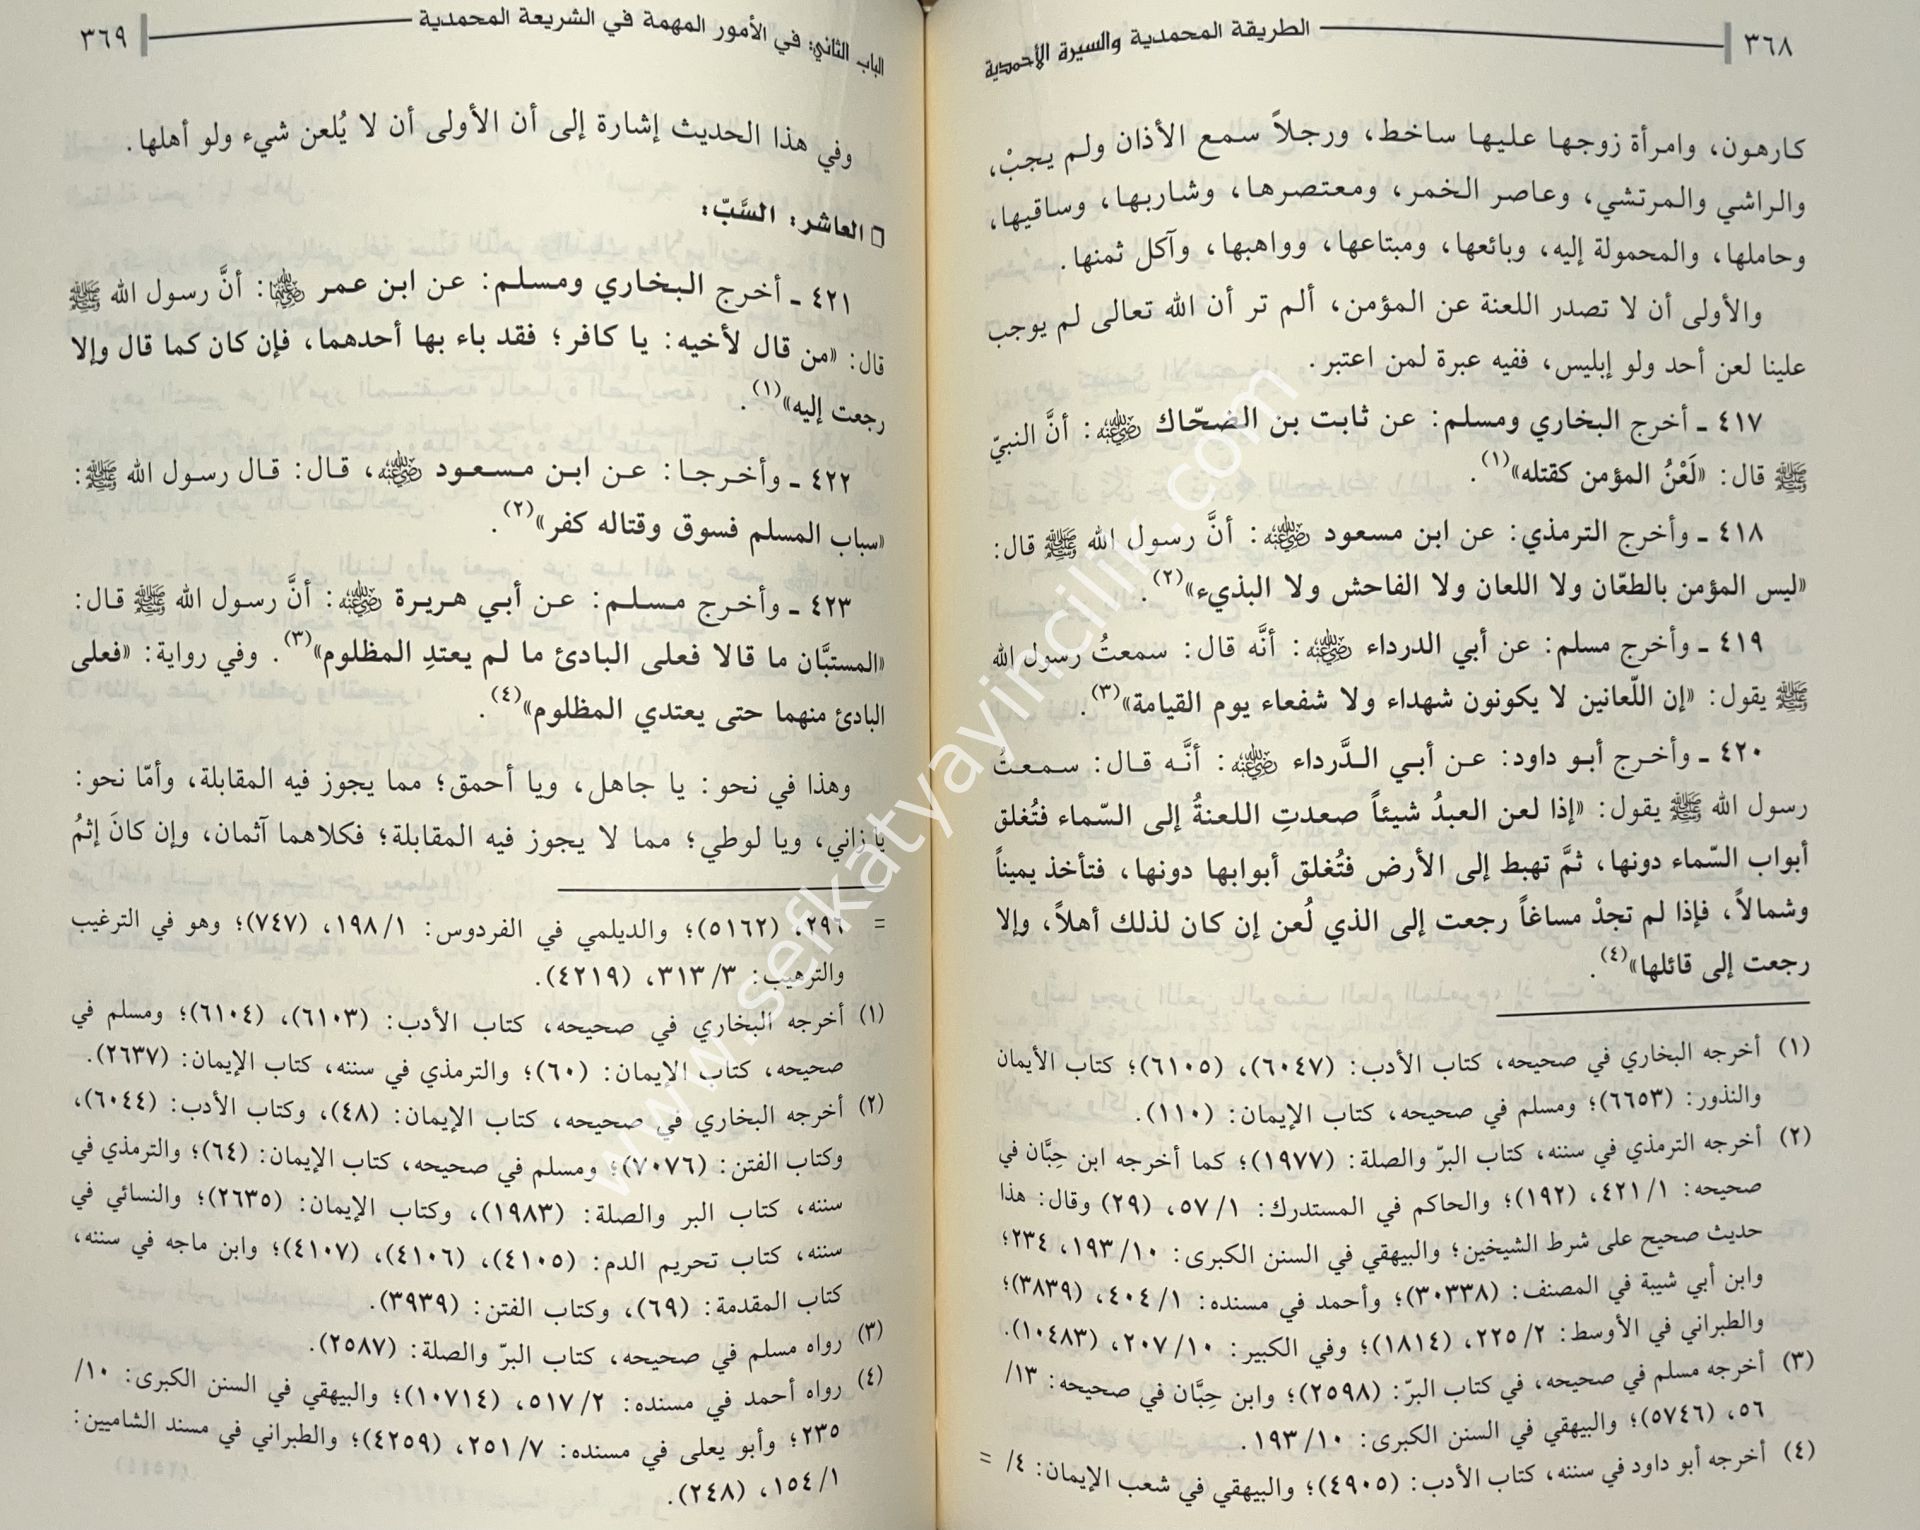 ٣٦٨ الطريقة المحمدية والسيرة الأحمدية
كارهون، وامرأة زوجها عليها ساخط، ورجلاً سمع الأذان ولم يجبْ،
والراشي والمرتشي، وعاصر الخمر، ومعتصرها، وشاربها، وساقيها،
وحاملها، والمحمولة إليه، وبائعها، ومبتاعها، وواهبها، وآكل ثمنها.
والأولى أن لا تصدر اللعنة عن المؤمن، ألم تر أن الله تعالى لم يوجب
علينا لعن أحد ولو إبليس، ففيه عبرة لمن اعتبر.
٤١٧ ـ أخرج البخاري ومسلم: عن ثابت بن الضحّاك ﷺ: أنَّ النبيّ
ﷺ قال: «لَعْنُ المؤمن كقتله»(١).
٤١٨ ـ وأخرج الترمذي: عن ابن مسعود رضي الله عنه: أنَّ رسول الله ﷺ قال:
«ليس المؤمن بالطعّان ولا اللعان ولا الفاحش ولا البذيء»(٢).
٤١٩ ـ وأخرج مسلم: عن أبي الدرداء رضي الله عنه: أنَّه قال: سمعتُ رسول الله
ﷺ يقول: «إن اللّعانين لا يكونون شهداء ولا شفعاء يوم القيامة»(٣).
٤٢٠ ـ وأخرج أبو داود: عن أبي الدَّرداء رضي الله عنه: أنَّه قال: سمعتُ
رسول الله ﷺ يقول: «إذا لعن العبدُ شيئاً صعدتِ اللعنةُ إلى السّماء فتُغلق
أبواب السّماء دونها، ثمَّ تهبط إلى الأرض فتُغلق أبوابها دونها، فتأخذ يميناً
وشمالاً، فإذا لم تجدْ مساغاً رجعت إلى الذي لُعن إن كان لذلك أهلاً، وإلا
رجعت إلى قائلها»(٤).
(١) أخرجه البخاري في صحيحه، كتاب الأدب: (٦٠٤٧)، (٦١٠٥)؛ كتاب الأيمان
والنذور: (٦٦٥٣)؛ ومسلم في صحيحه، كتاب الإيمان: (١١٠).
(٢) أخرجه الترمذي في سننه، كتاب البرّ والصلة: (١٩٧٧)؛ كما أخرجه ابن حِبَّان في
صحيحه: ٤٢١/١، (١٩٢)؛ والحاكم في المستدرك: ٥٧/١، (٢٩) وقال: هذا
حديث صحيح على شرط الشيخين؛ والبيهقي في السنن الكبرى: ١٩٣/١٠، ٢٣٤؛
وابن أبي شيبة في المصنف: (٣٠٣٣٨)؛ وأحمد في مسنده: ٤٠٤/١، (٣٨٣٩)؛
والطبراني في الأوسط: ٢٢٥/٢، (١٨١٤)؛ وفي الكبير: ٢٠٧/١٠، (١٠٤٨٣).
(٣) أخرجه مسلم في صحيحه، في كتاب البرّ: (٢٥٩٨)؛ وابن حِبَّان في صحيحه: ١٣/
٥٦، (٥٧٤٦)؛ والبيهقي في السنن الكبرى: ١٩٣/١٠.
(٤) أخرجه أبو داود في سننه، كتاب الأدب: (٤٩٠٥)؛ والبيهقي في شعب الإيمان: ٤/ =
الباب الثاني: في الأمور المهمة في الشريعة المحمدية ٣٦٩
وفي هذا الحديث إشارة إلى أن الأولى أن لا يُلعن شيء ولو أهلها.
□ العاشر: السَّبّ:
٤٢١ ـ أخرج البخاري ومسلم: عن ابن عمر رضي الله عنهما: أنَّ رسول الله ﷺ
قال: «من قال لأخيه: يا كافر؛ فقد باء بها أحدهما، فإن كان كما قال وإلا
رجعت إليه»(١).
٤٢٢ ـ وأخرجا: عن ابن مسعود رضي الله عنه، قال: قال رسول الله ﷺ:
«سباب المسلم فسوق وقتاله كفر»(٢).
٤٢٣ ـ وأخرج مسلم: عن أبي هريرة رضي الله عنه: أنَّ رسول الله ﷺ قال:
«المستبَّان ما قالا فعلى البادئ ما لم يعتدِ المظلوم»(٣). وفي رواية: «فعلى
البادئ منهما حتى يعتدي المظلوم»(٤).
وهذا في نحو: يا جاهل، ويا أحمق؛ مما يجوز فيه المقابلة، وأمّا نحو:
يا زاني، ويا لوطي؛ مما لا يجوز فيه المقابلة؛ فكلاهما آثمان، وإن كانَ إثمُ
= ٢٩٦، (٥١٦٢)؛ والديلمي في الفردوس: ١٩٨/١، (٧٤٧)؛ وهو في الترغيب
والترهيب: ٣١٣/٣، (٤٢١٩).
(١) أخرجه البخاري في صحيحه، كتاب الأدب: (٦١٠٣)، (٦١٠٤)؛ ومسلم في
صحيحه، كتاب الإيمان: (٦٠)؛ والترمذي في سننه، كتاب الإيمان: (٢٦٣٧).
(٢) أخرجه البخاري في صحيحه، كتاب الإيمان: (٤٨)، وكتاب الأدب: (٦٠٤٤)،
وكتاب الفتن: (٧٠٧٦)؛ ومسلم في صحيحه، كتاب الإيمان: (٦٤)؛ والترمذي في
سننه، كتاب البر والصلة: (١٩٨٣)، وكتاب الإيمان: (٢٦٣٥)؛ والنسائي في
سننه، كتاب تحريم الدم: (٤١٠٥)، (٤١٠٦)، (٤١٠٧)؛ وابن ماجه في سننه،
كتاب المقدمة: (٦٩)، وكتاب الفتن: (٣٩٣٩).
(٣) رواه مسلم في صحيحه، كتاب البرّ والصلة: (٢٥٨٧).
(٤) رواه أحمد في مسنده: ٥١٧/٢، (١٠٧١٤)؛ والبيهقي في السنن الكبرى: ١٠/
٢٣٥؛ وأبو يعلى في مسنده: ٢٥١/٧، (٤٢٥٩)؛ والطبراني في مسند الشاميين:
١٥٤/١، (٢٤٨).
www.sefkatyayincilik.com